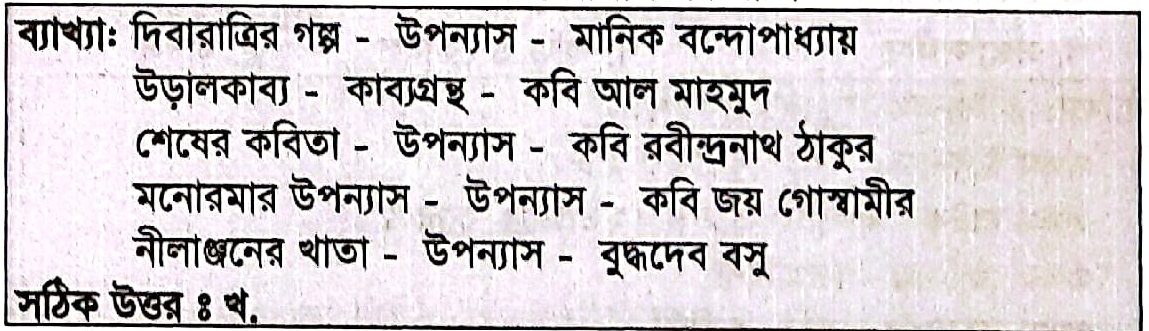 ব্যাখ্যা: দিবারাত্রির গল্প - উপন্যাস - মানিক বন্দোপাধ্যায়
উড়ালকাব্য - কাব্যগ্রন্থ - কবি আল মাহমুদ
শেষের কবিতা - উপন্যাস - কবি রবীন্দ্রনাথ ঠাকুর
মনোরমার উপন্যাস - উপন্যাস - কবি জয় গোস্বামীর
নীলাঞ্জনের খাতা - উপন্যাস - বুদ্ধদেব বসু
সঠিক উত্তর ঃ খ.